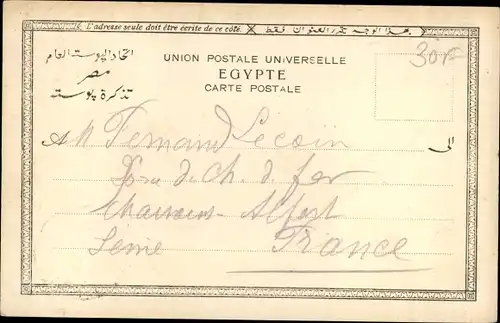 L'adresse seule doit être écrite de ce côté. هذا الوجه تكرر العنوان فقط
اتحاد البوستة العام
مصر
تذكرة بوسته
UNION POSTALE UNIVERSELLE
EGYPTE
CARTE POSTALE
30
A M Fernand Lecoin
الى
du Ch. d. fer
Alfort
Seine France